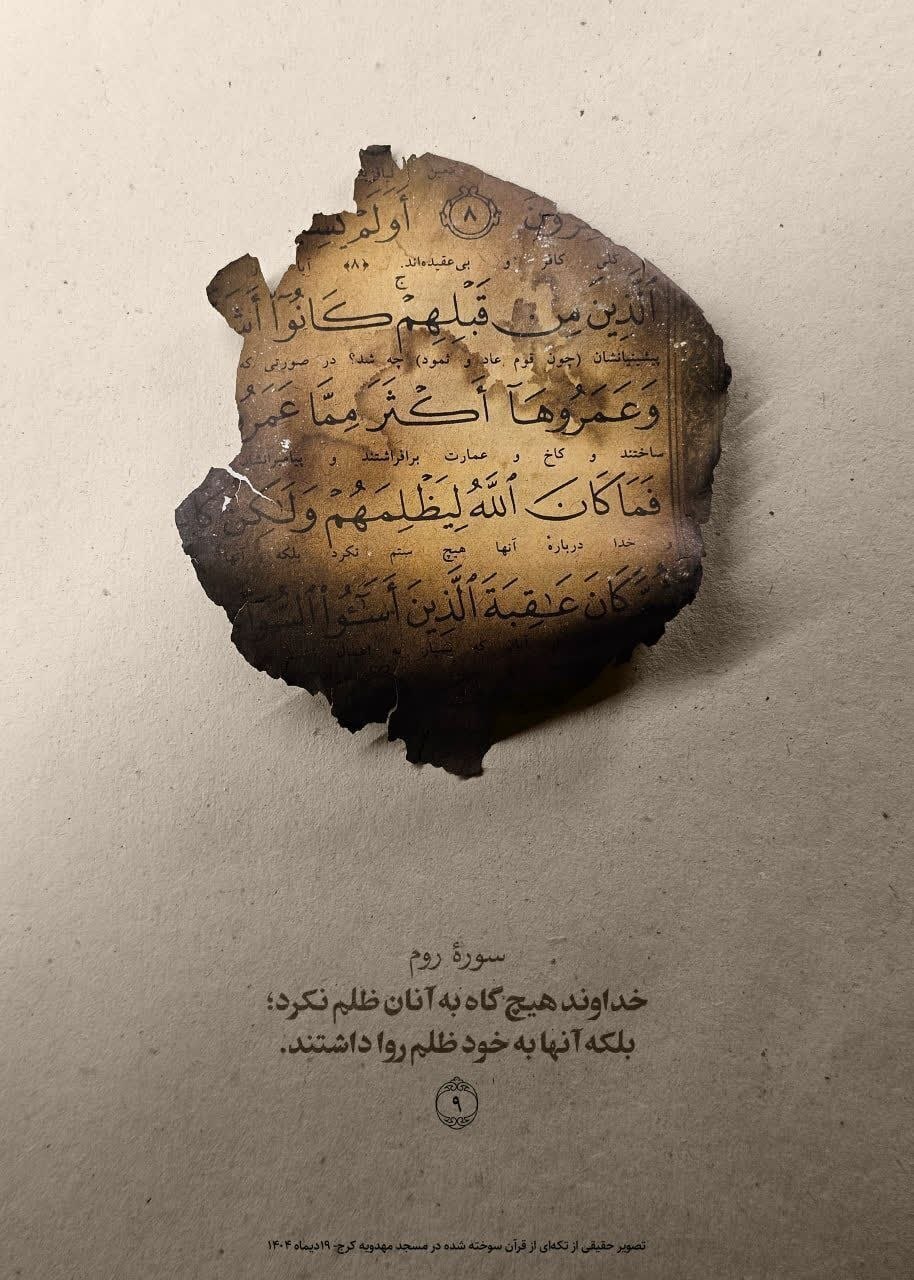 أَوَلَمْ
٨
کافر و بی‌عقیده‌اند. ﴿۸﴾
ٱلَّذِينَ مِن قَبْلِهِمْ ۚ كَانُوٓا۟
پیشینیانشان (چون قوم عاد و ثمود) چه شد؟ در صورتی که
وَعَمَرُوهَآ أَكْثَرَ مِمَّا
ساختند و کاخ و عمارت برافراشتند و
فَمَا كَانَ ٱللَّهُ لِيَظْلِمَهُمْ وَلَـٰكِن
و خدا دربارهٔ آنها هیچ ستم نکرد بلکه آنها
كَانَ عَـٰقِبَةَ ٱلَّذِينَ أَسَـٰٓـُٔوا۟
سورهٔ روم
خداوند هیچ گاه به آنان ظلم نکرد؛
بلکه آنها به خود ظلم روا داشتند.
۹
تصویر حقیقی از تکه‌ای از قرآن سوخته شده در مسجد مهدویه کرج- ۱۹دیماه ۱۴۰۴